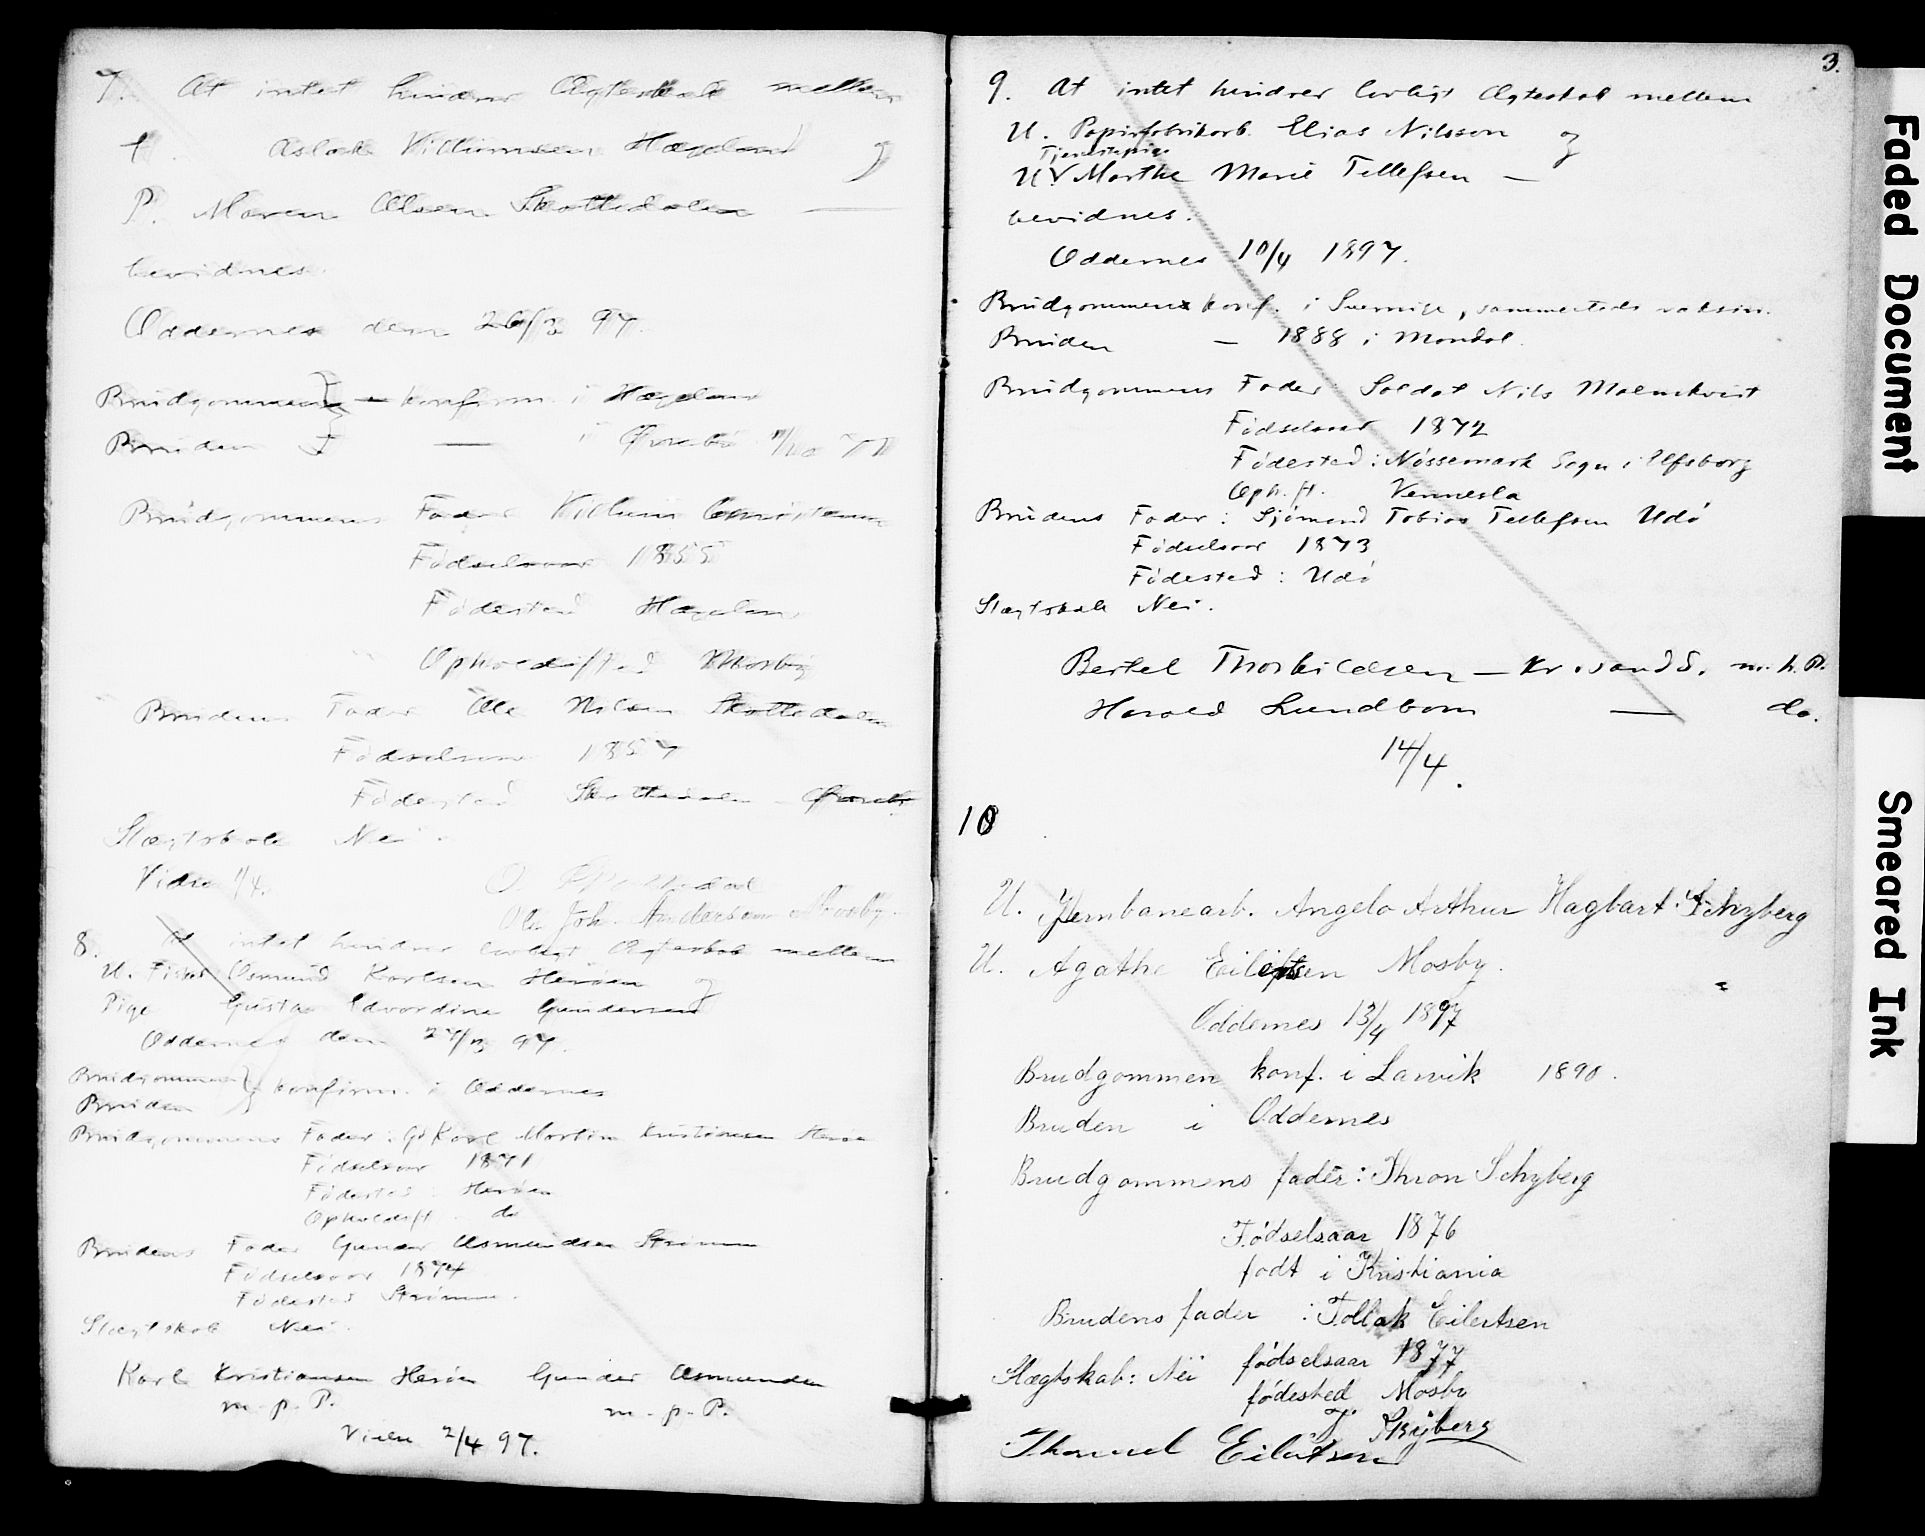 7. At intet hindrer Ægteskab mellem
Aslak Villumsen Hægeland og
P. Maren Olsen Skottedalen —
bevidnes.
Oddernes den 26/3 97.
Brudgommen } — konfirm. i Hægeland
Bruden — i Øvrebø
Brudgommens Fader Villum Christensen
Fødselsaar 1855
Fødested Hægeland
Opholdssted Mosby
Brudens Fader Ole Nilsen Skottedalen
Fødselsaar 1857
Fødested Skottedalen - Øvrebø
Slægtskab Nei.
Viede 1/4.
Ole Joh. Andersen Mosby.
8. At intet hindrer lovligt Ægteskab mellem
U. Fisker Osmund Karlsen Herøen og
Pige Gusta Edvardine Gundersen
Oddernes den 27/3 97.
Brudgommen } konfirm. i Oddernes
Bruden
Brudgommens Fader: Karl Martin Kristiansen Herøen
Fødselsaar 1871
Fødested: Herøen
Opholdsst. do
Brudens Fader Gunder Asmundsen Strømme
Fødselsaar 1874
Fødested Strømme.
Slægtskab Nei.
Karl Kristiansen Herøen Gunder Asmundsen
m. p. P. m. p. P.
Viede 2/4 97.
3.
9. At intet hindrer lovligt Ægteskab mellem
U. Papirfabrikarb. Elias Nilsson og
Tjenestepige
U. V Marthe Marie Tellefsen —
bevidnes.
Oddernes 10/4 1897.
Brudgommen konf. i Sverrige, sammesteds vaksin.
Bruden — 1888 i Mandal.
Brudgommens Fader: Soldat Nils Malmkvist
Fødselsaar 1872
Fødested: Nössemark Sogn i Elfsborg
Oph.st. Vennesla
Brudens Fader: Sjømand Tobias Tellefsen Udø
Fødselsaar 1873
Fødested: Udø
Slægtskab Nei.
Bertel Thorkildsen — Kr.sand S. m. h. P.
Harald Lundbom — do.
14/4.
10
U. Jernbanearb. Angelo Arthur Hagbart Schyberg
U. Agathe Eilertsen Mosby.
Oddernes 13/4 1897
Brudgommen konf. i Larvik 1890.
Bruden i Oddernes
Brudgommens fader: Thron Schyberg
Fødselsaar 1876
født i Kristiania
Brudens fader: Tollak Eilertsen
Slægtskab: Nei fødselsaar 1877
fødested Mosby
Skyberg
Eilertsen
Faded Document
Smeared Ink